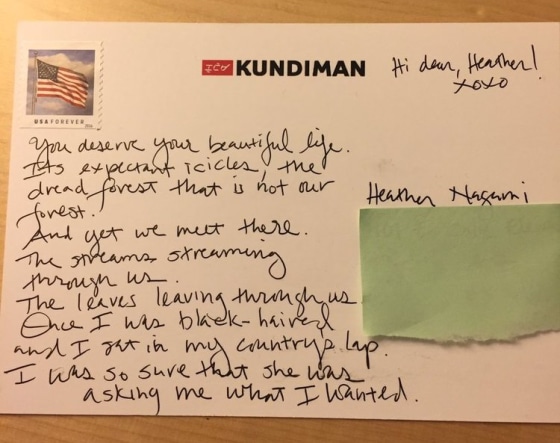 USA FOREVER
KUNDIMAN
Hi dear, Heather!
xoxo
You deserve your beautiful life.
Its expectant icicles, the
dread forest that is not our
forest.
And yet we meet there.
The streams streaming
through us.
The leaves leaving through us.
Once I was black-haired
and I sat in my country's lap.
I was so sure that she was
asking me what I wanted.
Heather Nagami